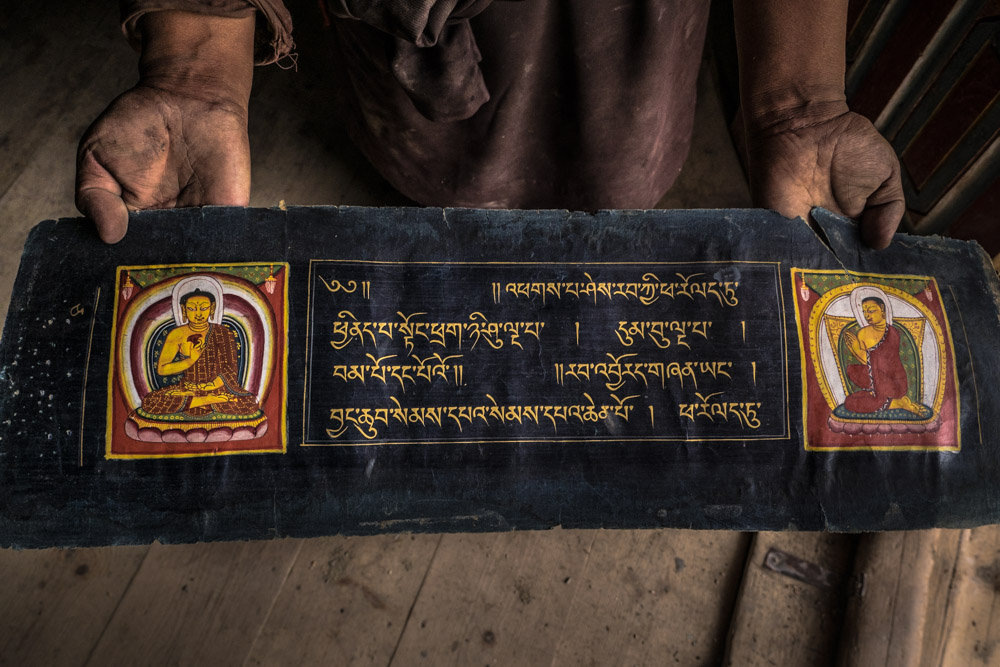 ༄༅།། །།འཕགས་པ་ཤེས་རབ་ཀྱི་ཕ་རོལད་ཏུ་
ཕྱིནད་པ་སྟོང་ཕྲག་ཉི་ཤུ་ལྔ་པ་ ། དུམ་བུ་ལྔ་པ་ །
བམ་པོ་དང་པོའོ་།། །།རབ་འབྱོརད་གཞན་ཡང་ །
བྱང་ཆུབ་སེམས་དཔའ་སེམས་དཔའ་ཆེན་པོ་ ། ཕ་རོལད་ཏུ་